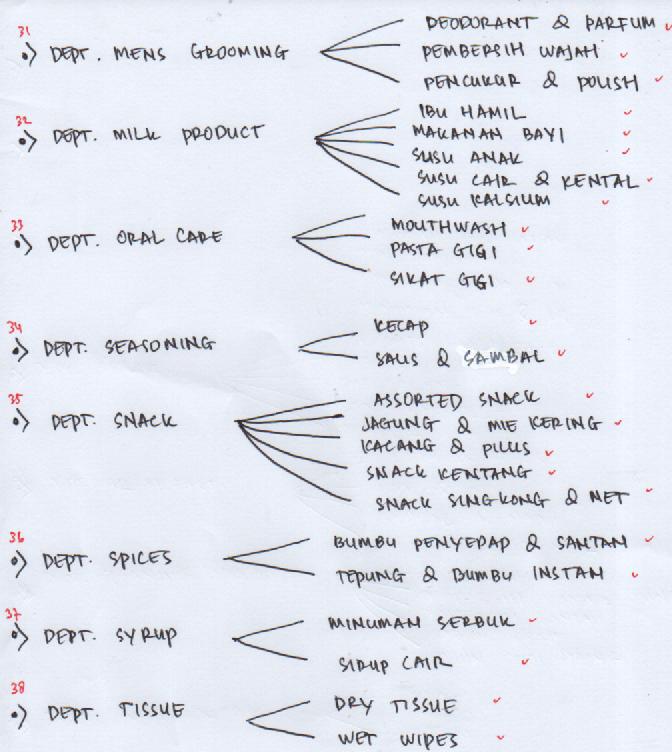 31
DEPT. MENS GROOMING
DEODORANT & PARFUM
PEMBERSIH WAJAH
PENCUKUR & POLISH
32
DEPT. MILK PRODUCT
IBU HAMIL
MAKANAN BAYI
SUSU ANAK
SUSU CAIR & KENTAL
SUSU KALSIUM
33
DEPT. ORAL CARE
MOUTHWASH
PASTA GIGI
SIKAT GIGI
34
DEPT. SEASONING
KECAP
SAUS & SAMBAL
35
DEPT. SNACK
ASSORTED SNACK
JAGUNG & MIE KERING
KACANG & PILUS
SNACK KENTANG
SNACK SINGKONG & NET
36
DEPT. SPICES
BUMBU PENYEDAP & SANTAN
TEPUNG & BUMBU INSTAN
37
DEPT. SYRUP
MINUMAN SERBUK
SIRUP CAIR
38
DEPT. TISSUE
DRY TISSUE
WET WIPES